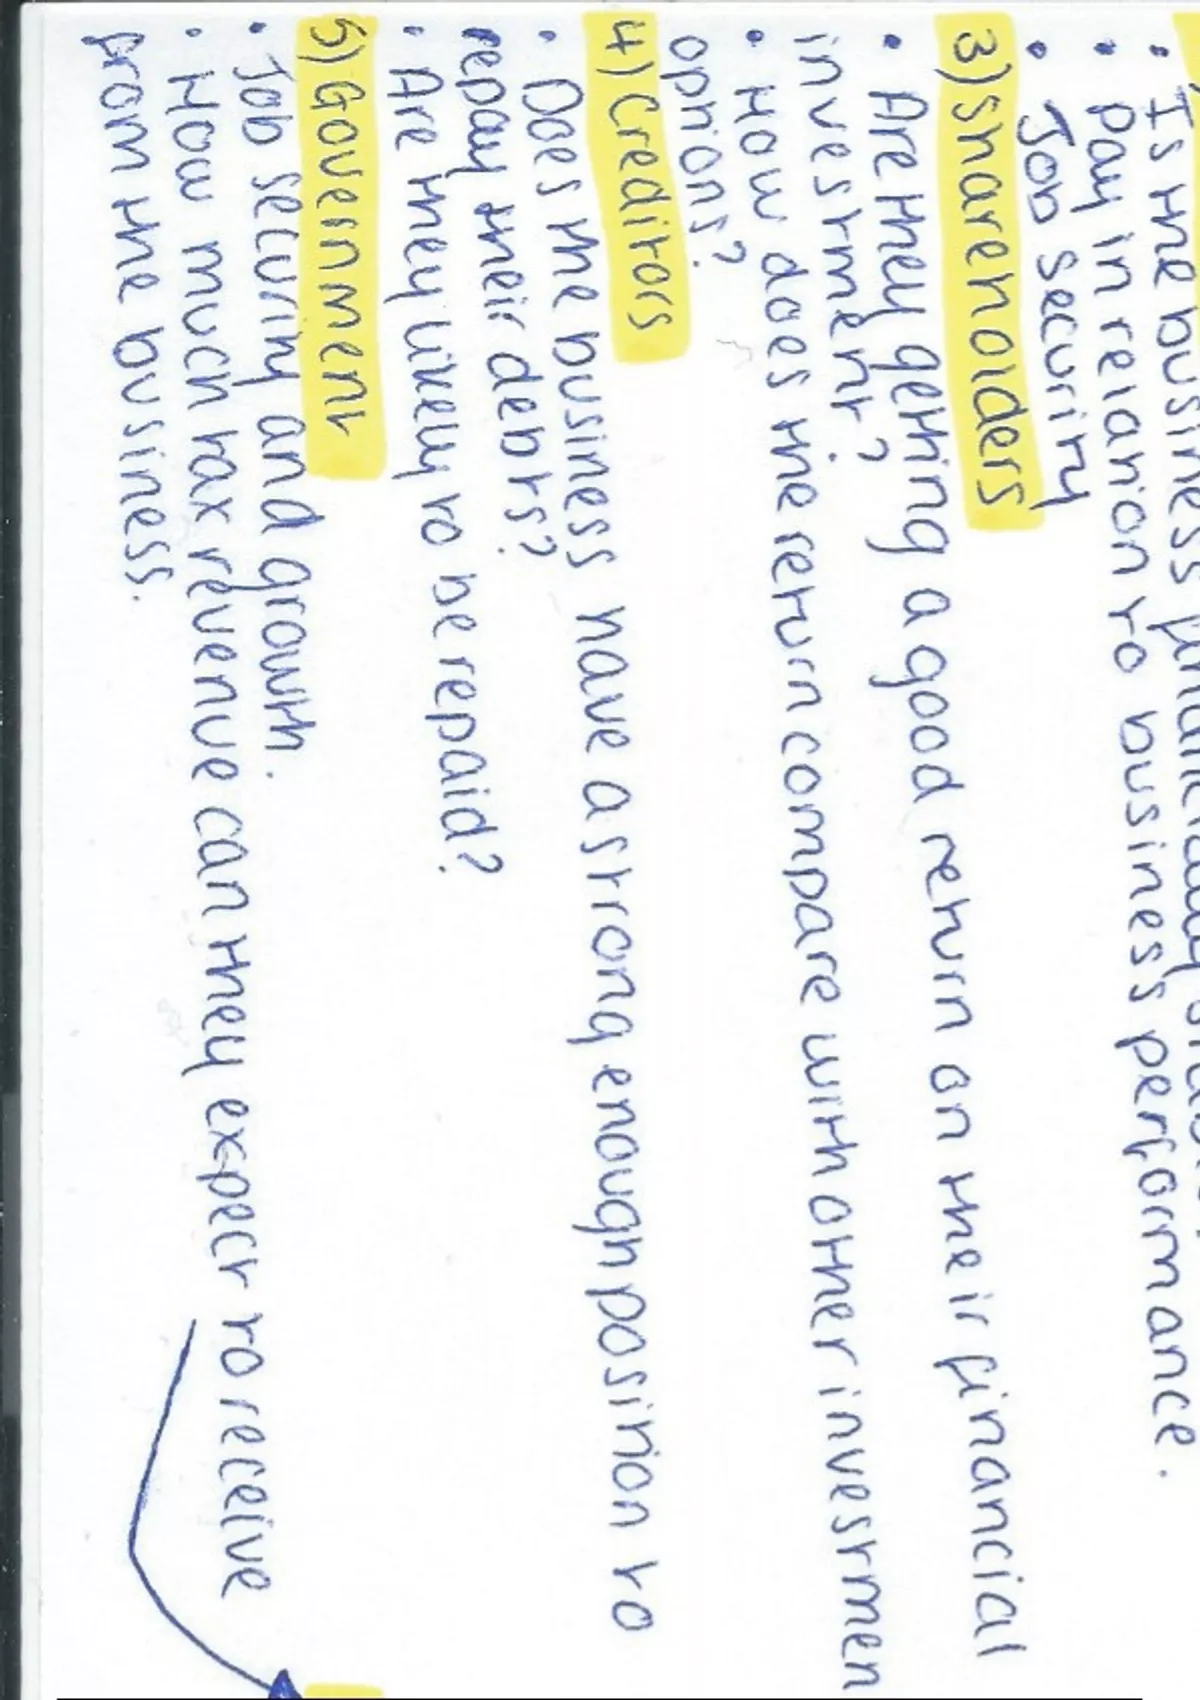 • Is the business financially
• Pay in relation to business performance.
• Job security
3) Shareholders
• Are they getting a good return on their financial
investment?
• How does the return compare with other investmen
options?
4) Creditors
• Does the business have a strong enough position to
repay their debts?
• Are they likely to be repaid?
5) Government
• Job security and growth.
• How much tax revenue can they expect to receive
from the business.